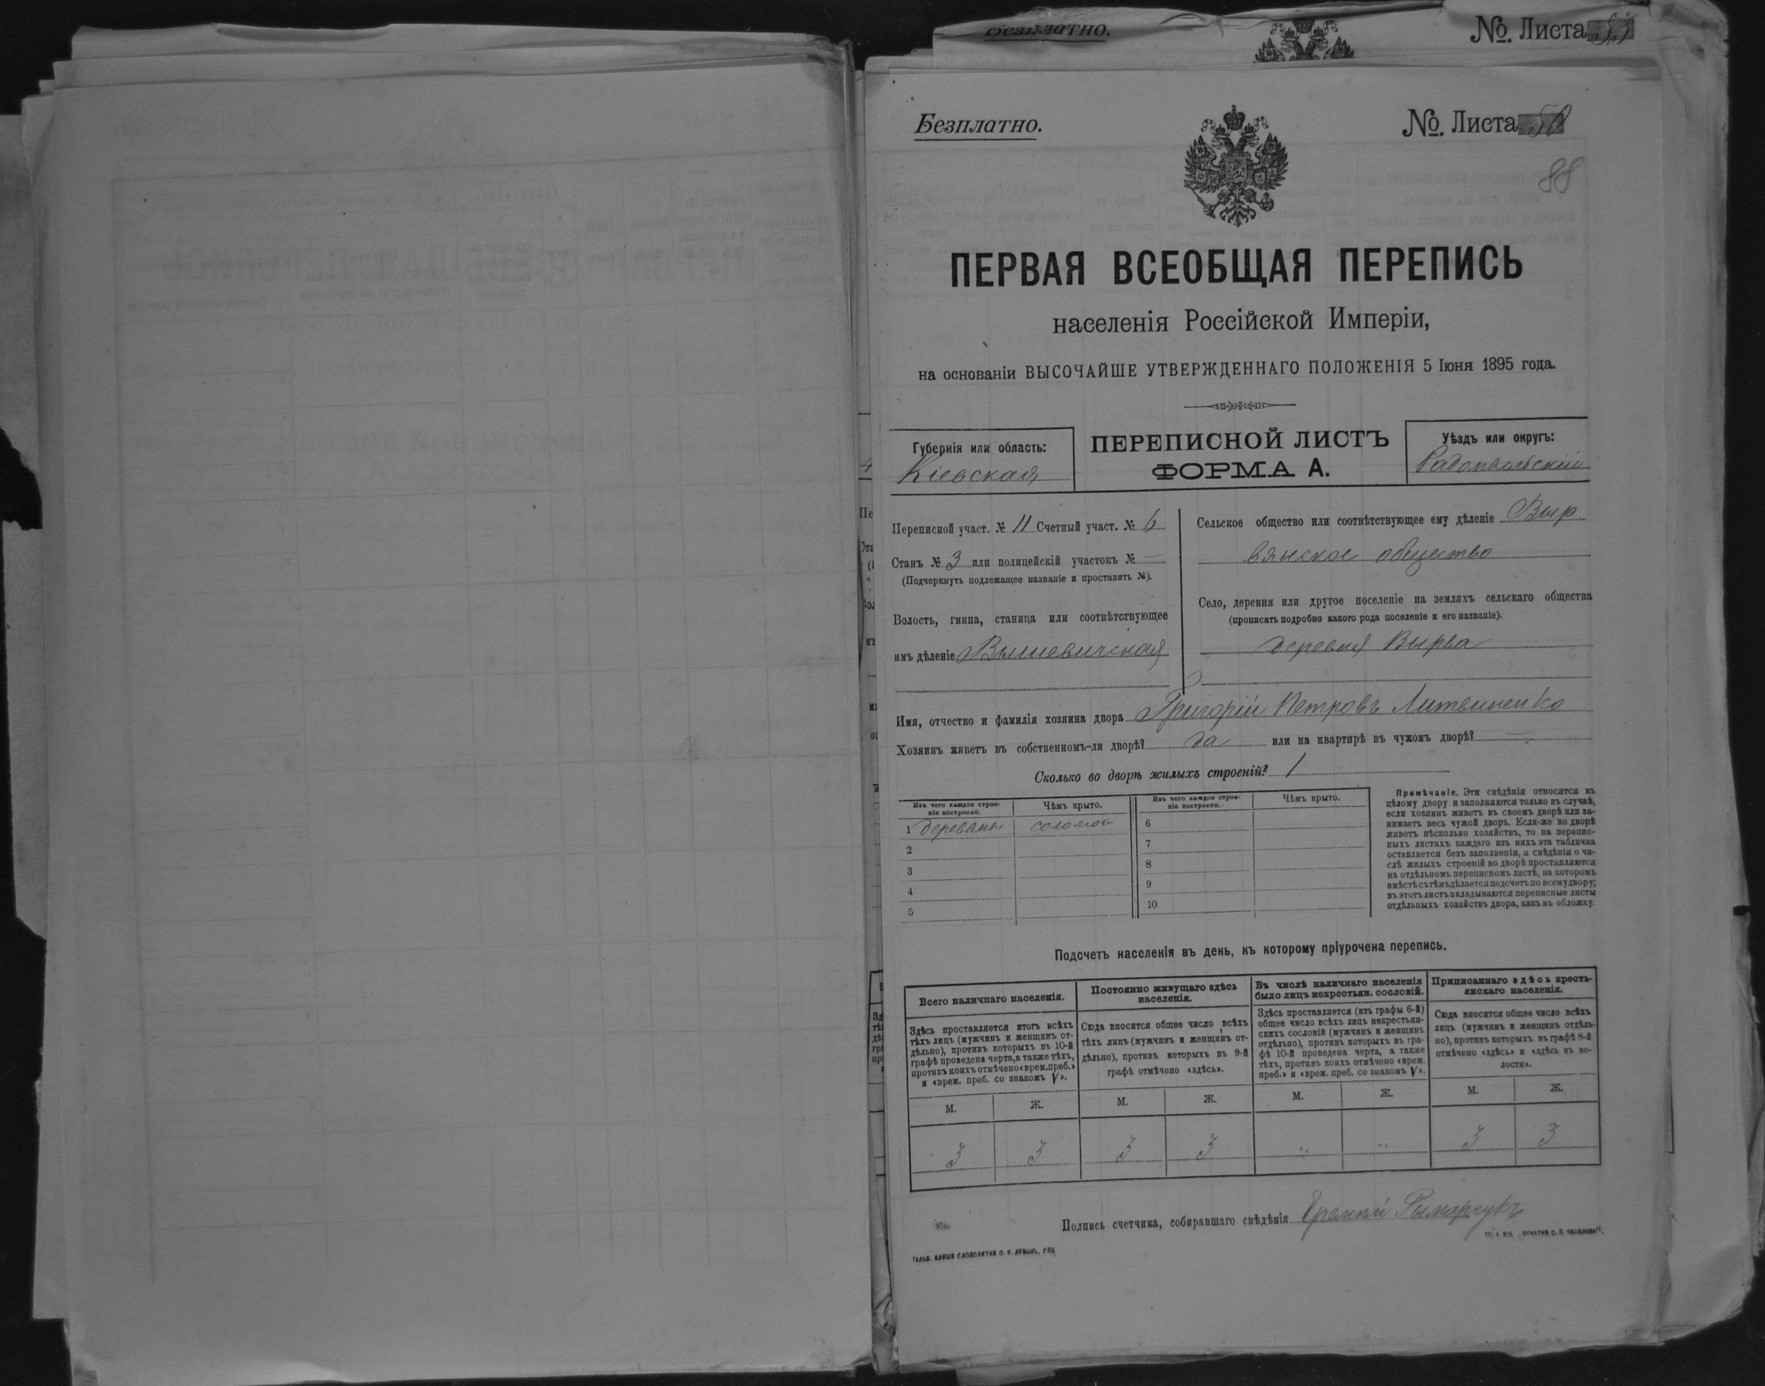 Безплатно.
№. Листа
Безплатно.
№. Листа 58
88
ПЕРВАЯ ВСЕОБЩАЯ ПЕРЕПИСЬ
населенія Россійской Имперіи,
на основаніи ВЫСОЧАЙШЕ УТВЕРЖДЕННАГО ПОЛОЖЕНІЯ 5 Іюня 1895 года.
Губернія или область:
Кіевская
ПЕРЕПИСНОЙ ЛИСТЪ
ФОРМА А.
Уѣздъ или округъ:
Радомысльскій
Переписной участ. № 11 Счетный участ. № 6
Станъ № 3 или полицейскій участокъ № —
(Подчеркнуть подлежащее названіе и проставить №).
Волость, гмина, станица или соотвѣтствующее
имъ дѣленіе Вышевичская
Сельское общество или соотвѣтствующее ему дѣленіе Выр
вянское общество
Село, деревня или другое поселеніе на земляхъ сельскаго общества
(прописать подробно какого рода поселеніе и его названіе).
деревня Вырва
Имя, отчество и фамилія хозяина двора Григорій Петровъ Литвиненко
Хозяинъ живетъ въ собственномъ-ли дворѣ? да или на квартирѣ въ чужомъ дворѣ? —
Сколько во дворѣ жилыхъ строеній? 1
Изъ чего каждое строе-
ніе построено.
Чѣмъ крыто.
Изъ чего каждое строе-
ніе построено.
Чѣмъ крыто.
1 деревяны соломой
2
3
4
5
6
7
8
9
10
Примѣчаніе. Эти свѣдѣнія относятся къ
цѣлому двору и заполняются только въ случаѣ,
если хозяинъ живетъ въ своемъ дворѣ или за-
нимаетъ весь чужой дворъ. Если-же во дворѣ
живетъ нѣсколько хозяйствъ, то на перепис-
ныхъ листахъ каждаго изъ нихъ эта табличка
оставляется безъ заполненія, а свѣдѣнія о чи-
слѣ жилыхъ строеній во дворѣ проставляются
на отдѣльномъ переписномъ листѣ, на которомъ
вмѣстѣ съ тѣмъ дѣлается подсчетъ по всему двору;
въ этотъ листъ вкладываются переписные листы
отдѣльныхъ хозяйствъ двора, какъ въ обложку.
Подсчетъ населенія въ день, къ которому пріурочена перепись.
Всего наличнаго населенія.
Здѣсь проставляется итогъ всѣхъ
тѣхъ лицъ (мужчинъ и женщинъ от-
дѣльно), противъ которыхъ въ 10-й
графѣ проведена черта, а также тѣхъ,
противъ коихъ отмѣчено «врем. преб.»
и «врем. преб. со знакомъ V».
Постоянно живущаго здѣсь
населенія.
Сюда вносится общее число всѣхъ
тѣхъ лицъ (мужчинъ и женщинъ от-
дѣльно), противъ которыхъ въ 9-й
графѣ отмѣчено «здѣсь».
Въ числѣ наличнаго населенія
было лицъ некрестьян. сословій.
Здѣсь проставляется (изъ графы 6-й)
общее число всѣхъ лицъ некрестьян-
скихъ сословій (мужчинъ и женщинъ
отдѣльно), противъ которыхъ въ гра-
фѣ 10-й проведена черта, а также
тѣхъ, противъ коихъ отмѣчено «врем.
преб.» и «врем. преб. со знакомъ V».
Приписаннаго здѣсь кресть-
янскаго населенія.
Сюда вносится общее число всѣхъ
лицъ (мужчинъ и женщинъ отдѣль-
но), противъ которыхъ въ графѣ 8-й
отмѣчено «здѣсь» и «здѣсь въ во-
лости».
М. Ж. М. Ж. М. Ж. М. Ж.
3 3 3 3 " " 3 3
Подпись счетчика, собиравшаго свѣдѣнія Римарчукъ